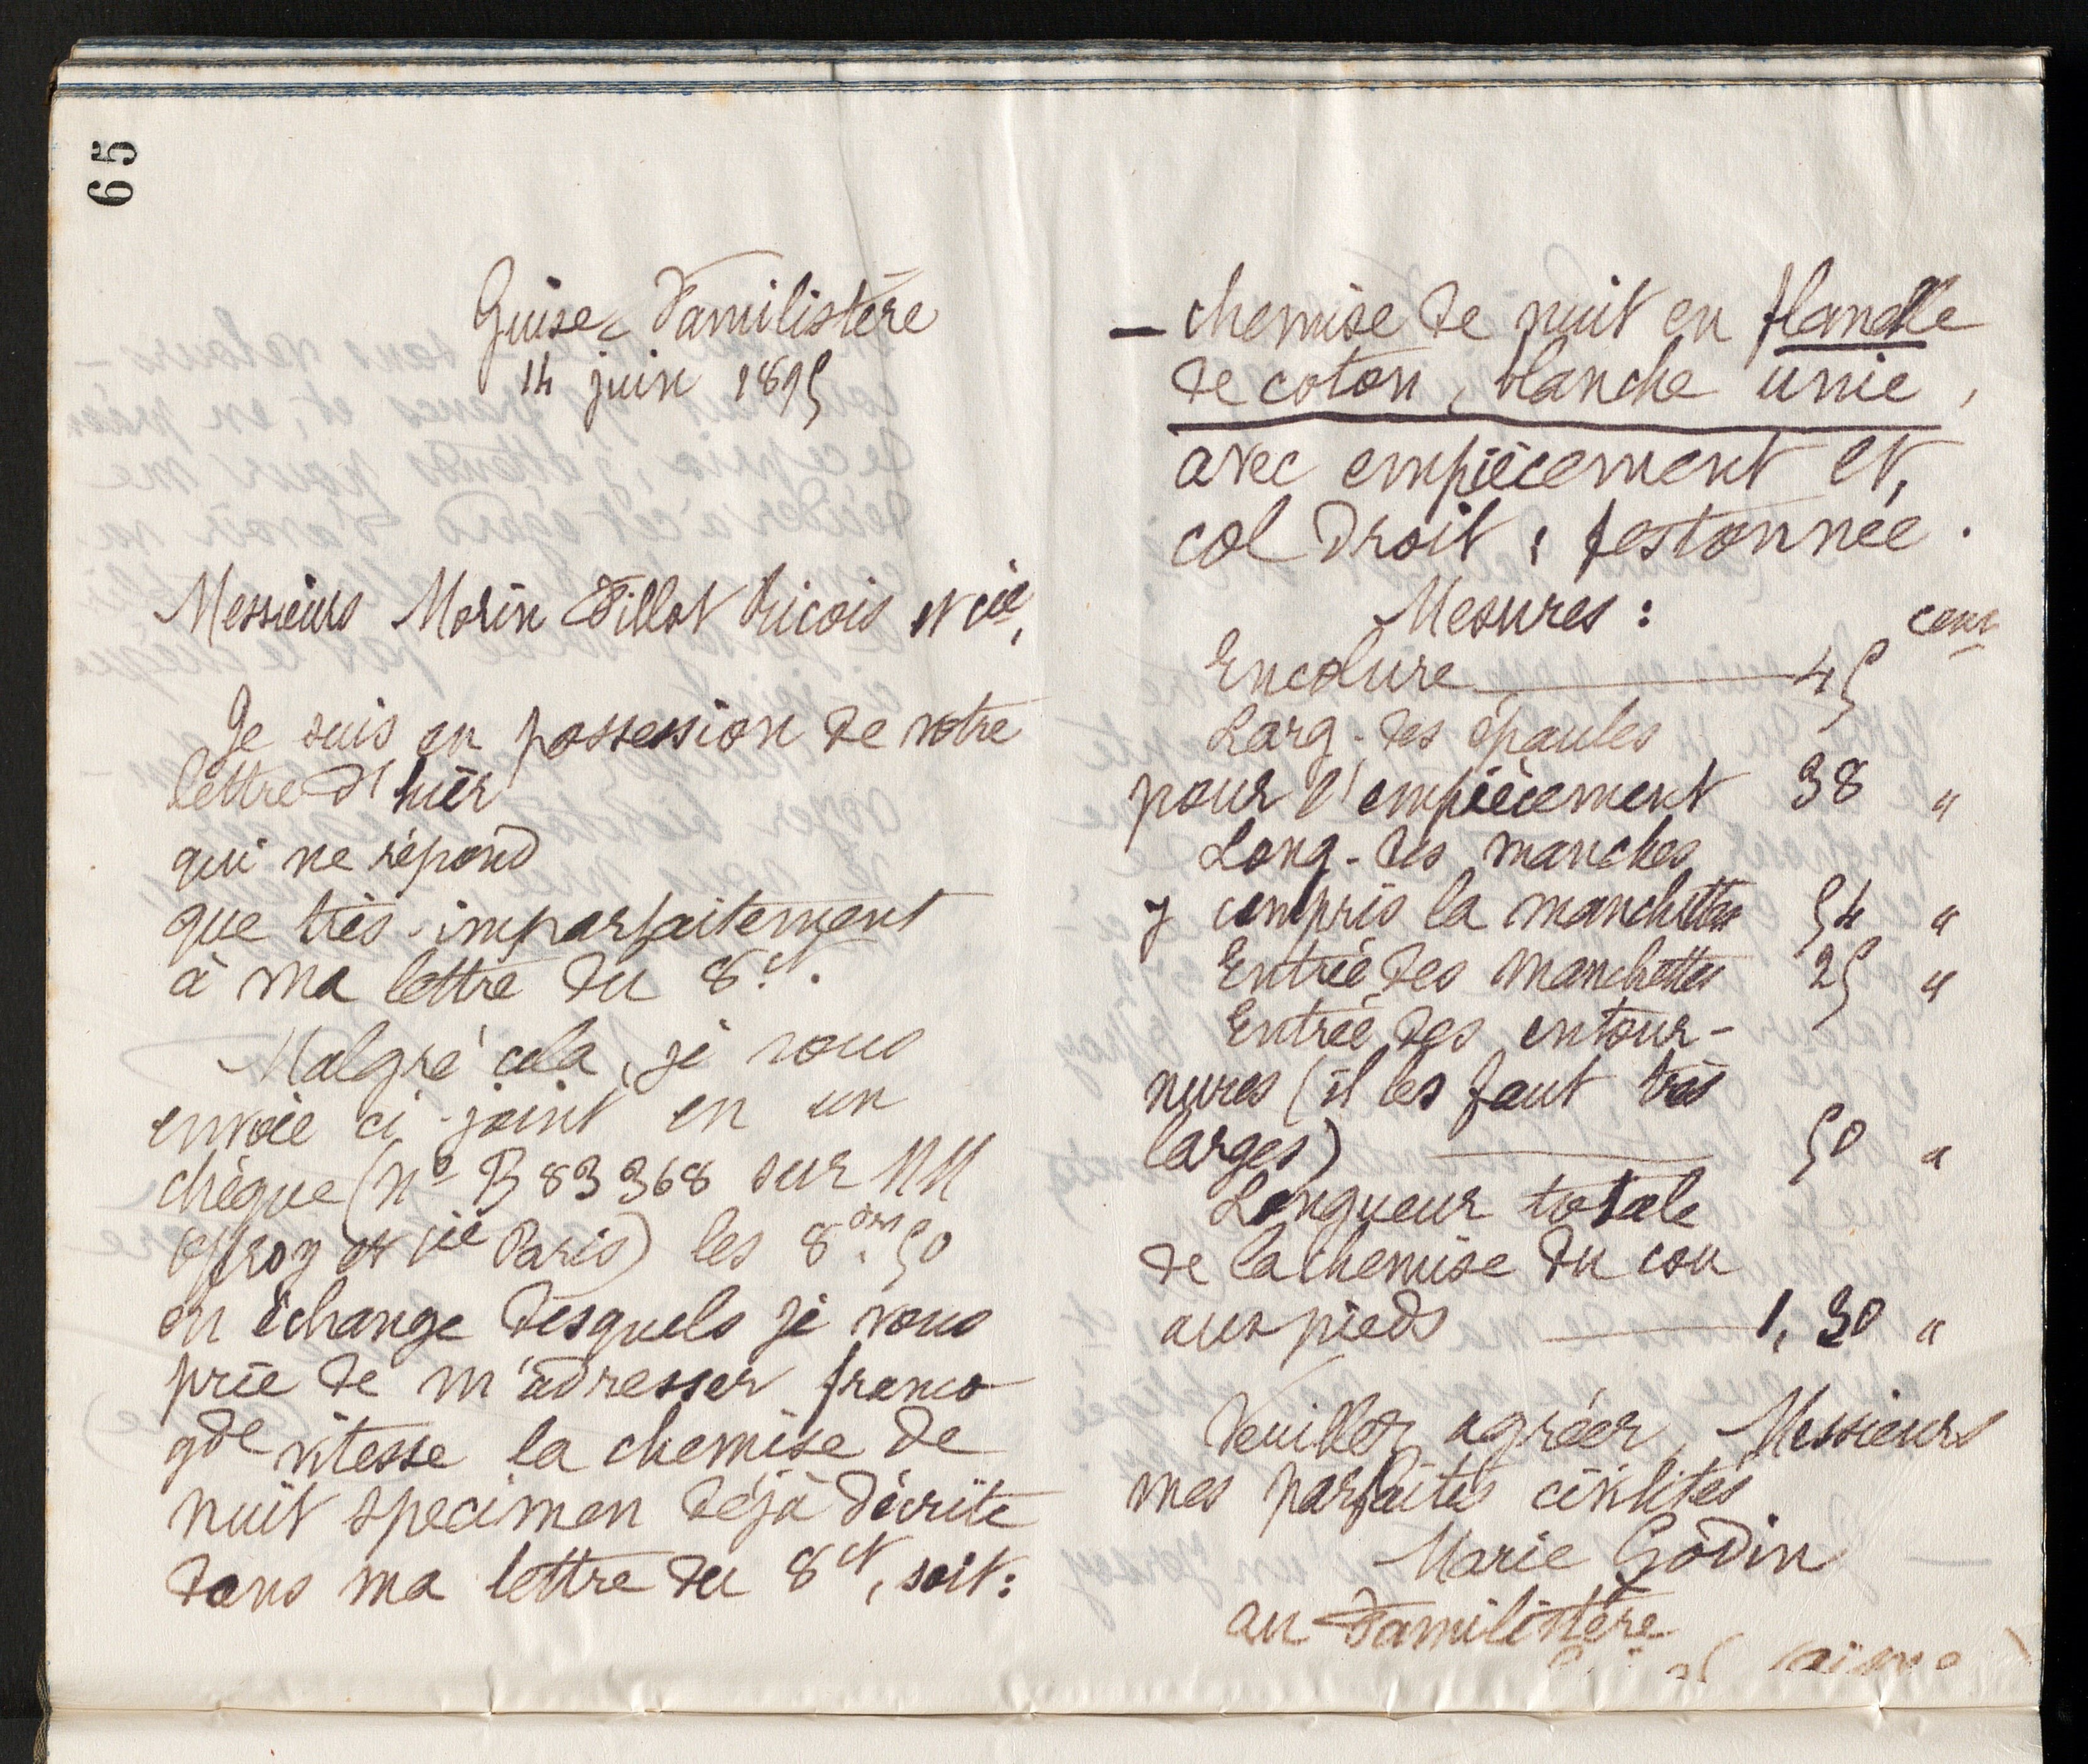 65
Guise, Familistère
14 juin 1895
Messieurs Morin Fillot Ricois et cie,
Je suis en possession de votre
lettre d'hier
qui ne répond
que très-imparfaitement
à ma lettre du 8 ct.
Malgré cela, je vous
envoie ci-joint en un
chèque (nº B 83368 sur MM
Offroy et cie Paris) les 8.50
en échange desquels je vous
prie de m'adresser franco
gde vitesse la chemise de
nuit specimen déjà décrite
dans ma lettre du 8 ct, soit:
— chemise de nuit en flanelle
de coton, blanche unie,
avec empiècement et,
col droit, festonnée.
Mesures : cent
Encolure — 45
Larg. des épaules
pour l'empiècement 38 "
Long. des manches
y compris la manchette 54 "
Entrée des manchettes 25 "
Entrée des entour-
nures (il les faut très
larges) — 50 "
Longueur totale
de la chemise du cou
aux pieds — 1,30 "
Veuillez agréer, Messieurs
mes parfaites civilités
Marie Godin
au Familistère